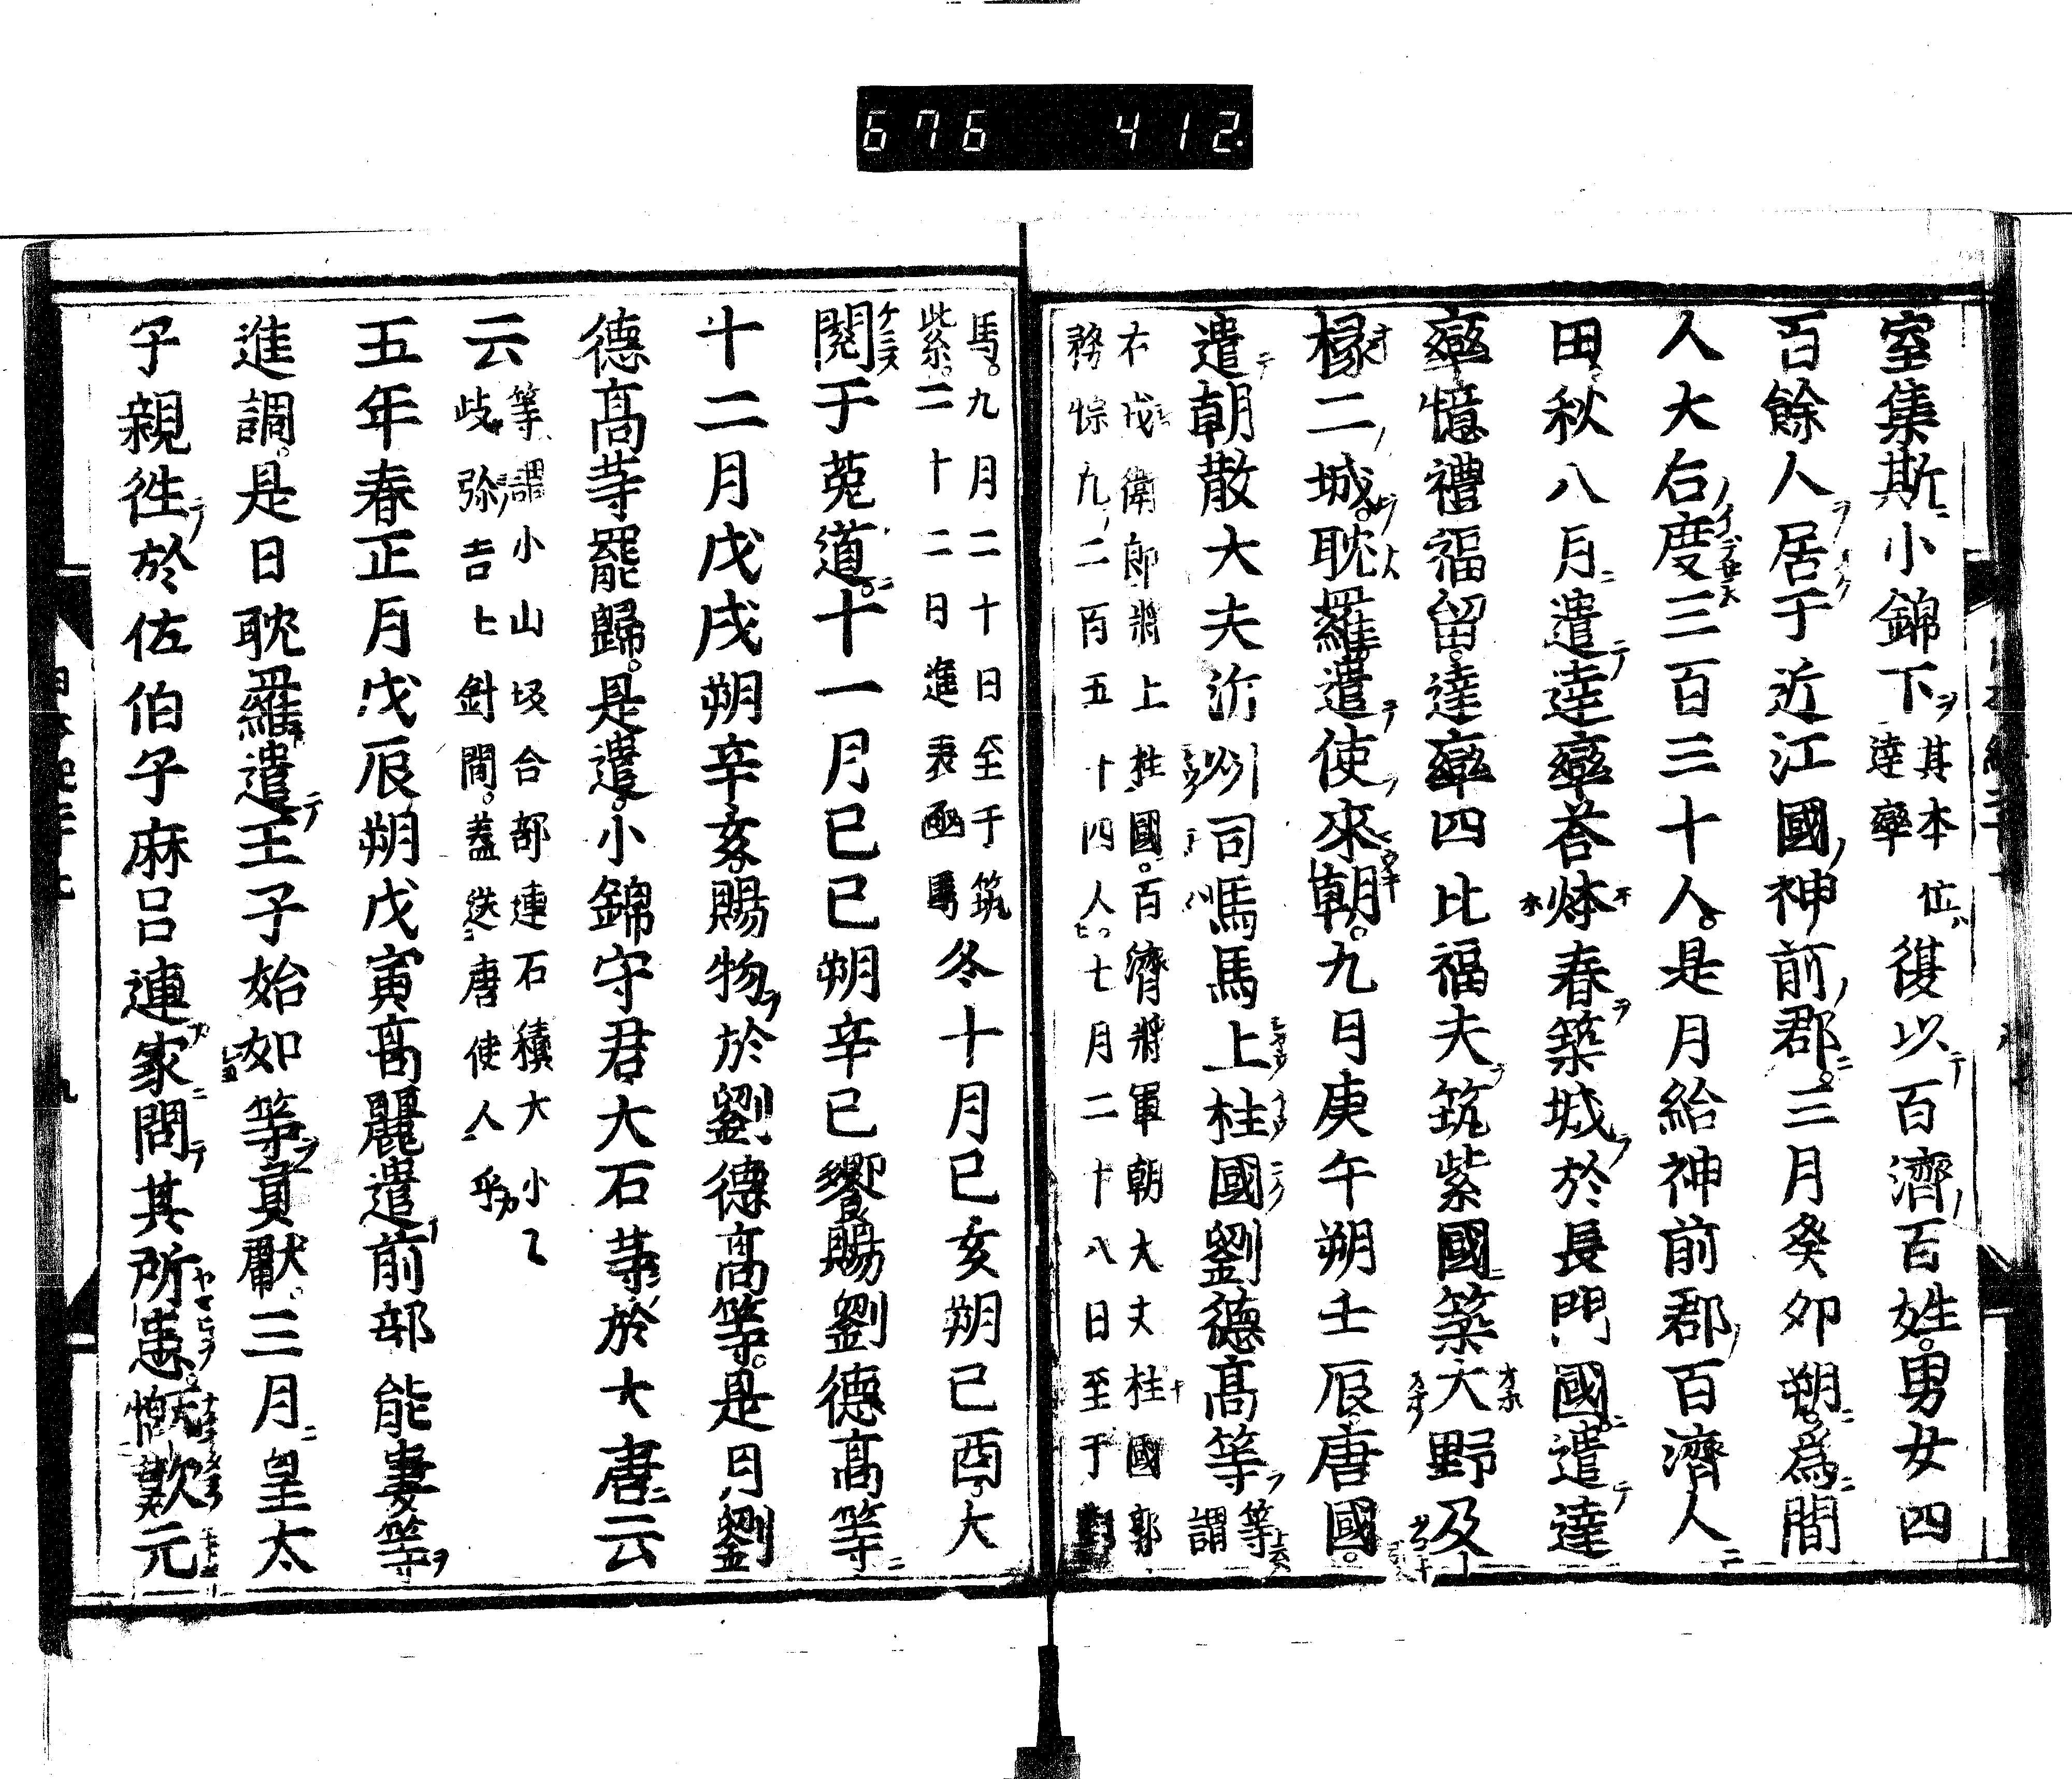 676 412
室集斯小錦下其本位達率復以百濟百姓男女四
百餘人居于近江國神前郡三月癸卯朔爲間
人大后度三百三十人是月給神前郡百濟人
田秋八月遣達率荅㶱春築城於長門國遣達
率憶禮福留達率四比福夫筑紫國築大野及
椽二城耽羅遣使來朝九月庚午朔壬辰唐國
遣朝散大夫沂州司馬馬上柱國劉德高等等謂
右戎衛郎將上柱國百濟將軍朝大夫柱國郭
務悰九二百五十四人七月二十八日至于對
馬九月二十日至于筑
紫二十二日進表函
冬十月己亥朔己酉大
閱于菟道十一月己巳朔辛巳饗賜劉德高等
十二月戊戌朔辛亥賜物於劉德高等是月劉
德高等罷歸是遣小錦守君大石等於大唐云
云等謂小山坂合部連石積大小乙
歧弥吉士針間蓋送唐使人乎
五年春正月戊辰朔戊寅高麗遣前部能婁等
進調是日耽羅遣王子始如等貢獻三月皇太
子親往於佐伯子麻呂連家問其所患慨歎元